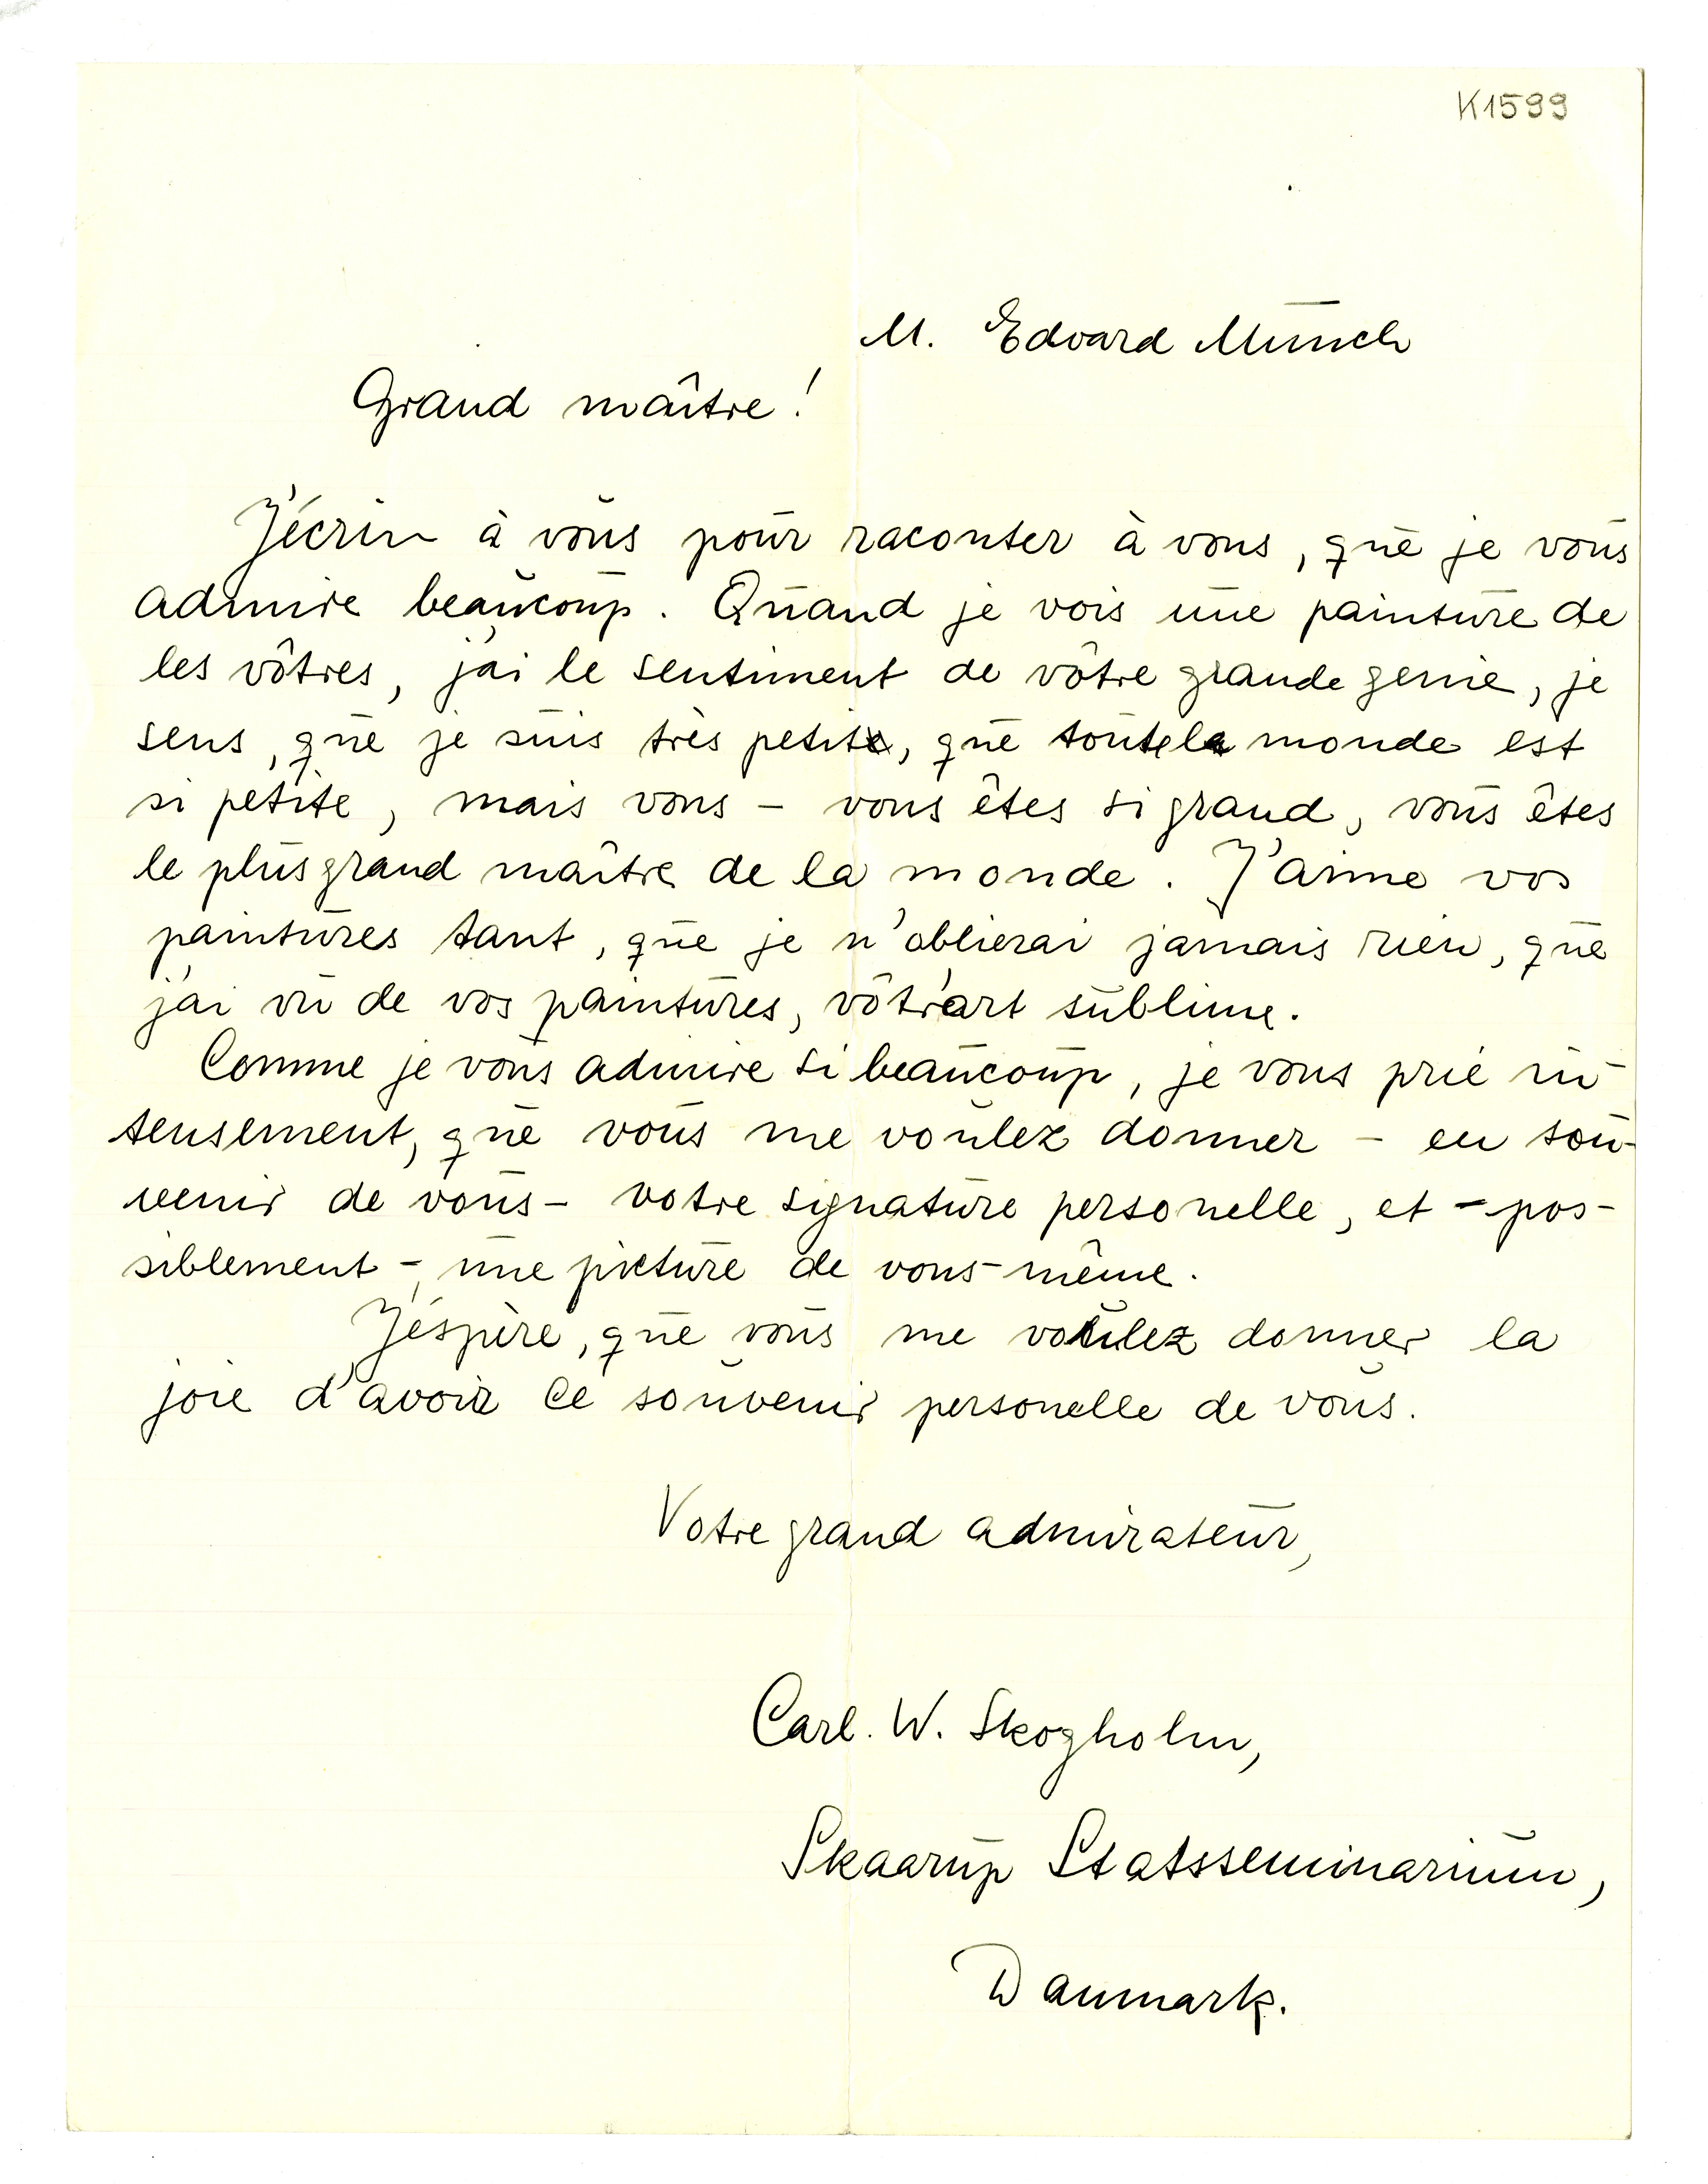 K1599
M. Edvard Munch
Grand maître!
J'écris à vous pour raconter à vous, que je vous
admire beaucoup. Quand je vois une painture de
les vôtres, j'ai le sentiment de vôtre grande genie, je
sens, que je suis très petit, que toute la monde est
si petite, mais vous – vous êtes si grand, vous êtes
le plus grand maître de la monde. J'aime vos
paintures tant, que je n'oblierai jamais rien, que
j'ai vu de vos paintures, vôtr'art sublime.
Comme je vous admire si beaucoup, je vous prie in-
tensement, que vous me voulez donner – en sou-
venir de vous – votre signature personelle, et – pos-
siblement – une picture de vous-même.
J'éspère, que vous me voulez donner la
joie d'avoir ce souvenir personelle de vous.
Votre grand admirateur,
Carl. W. Skogholm,
Skaarup Statsseminarium,
Danmark.